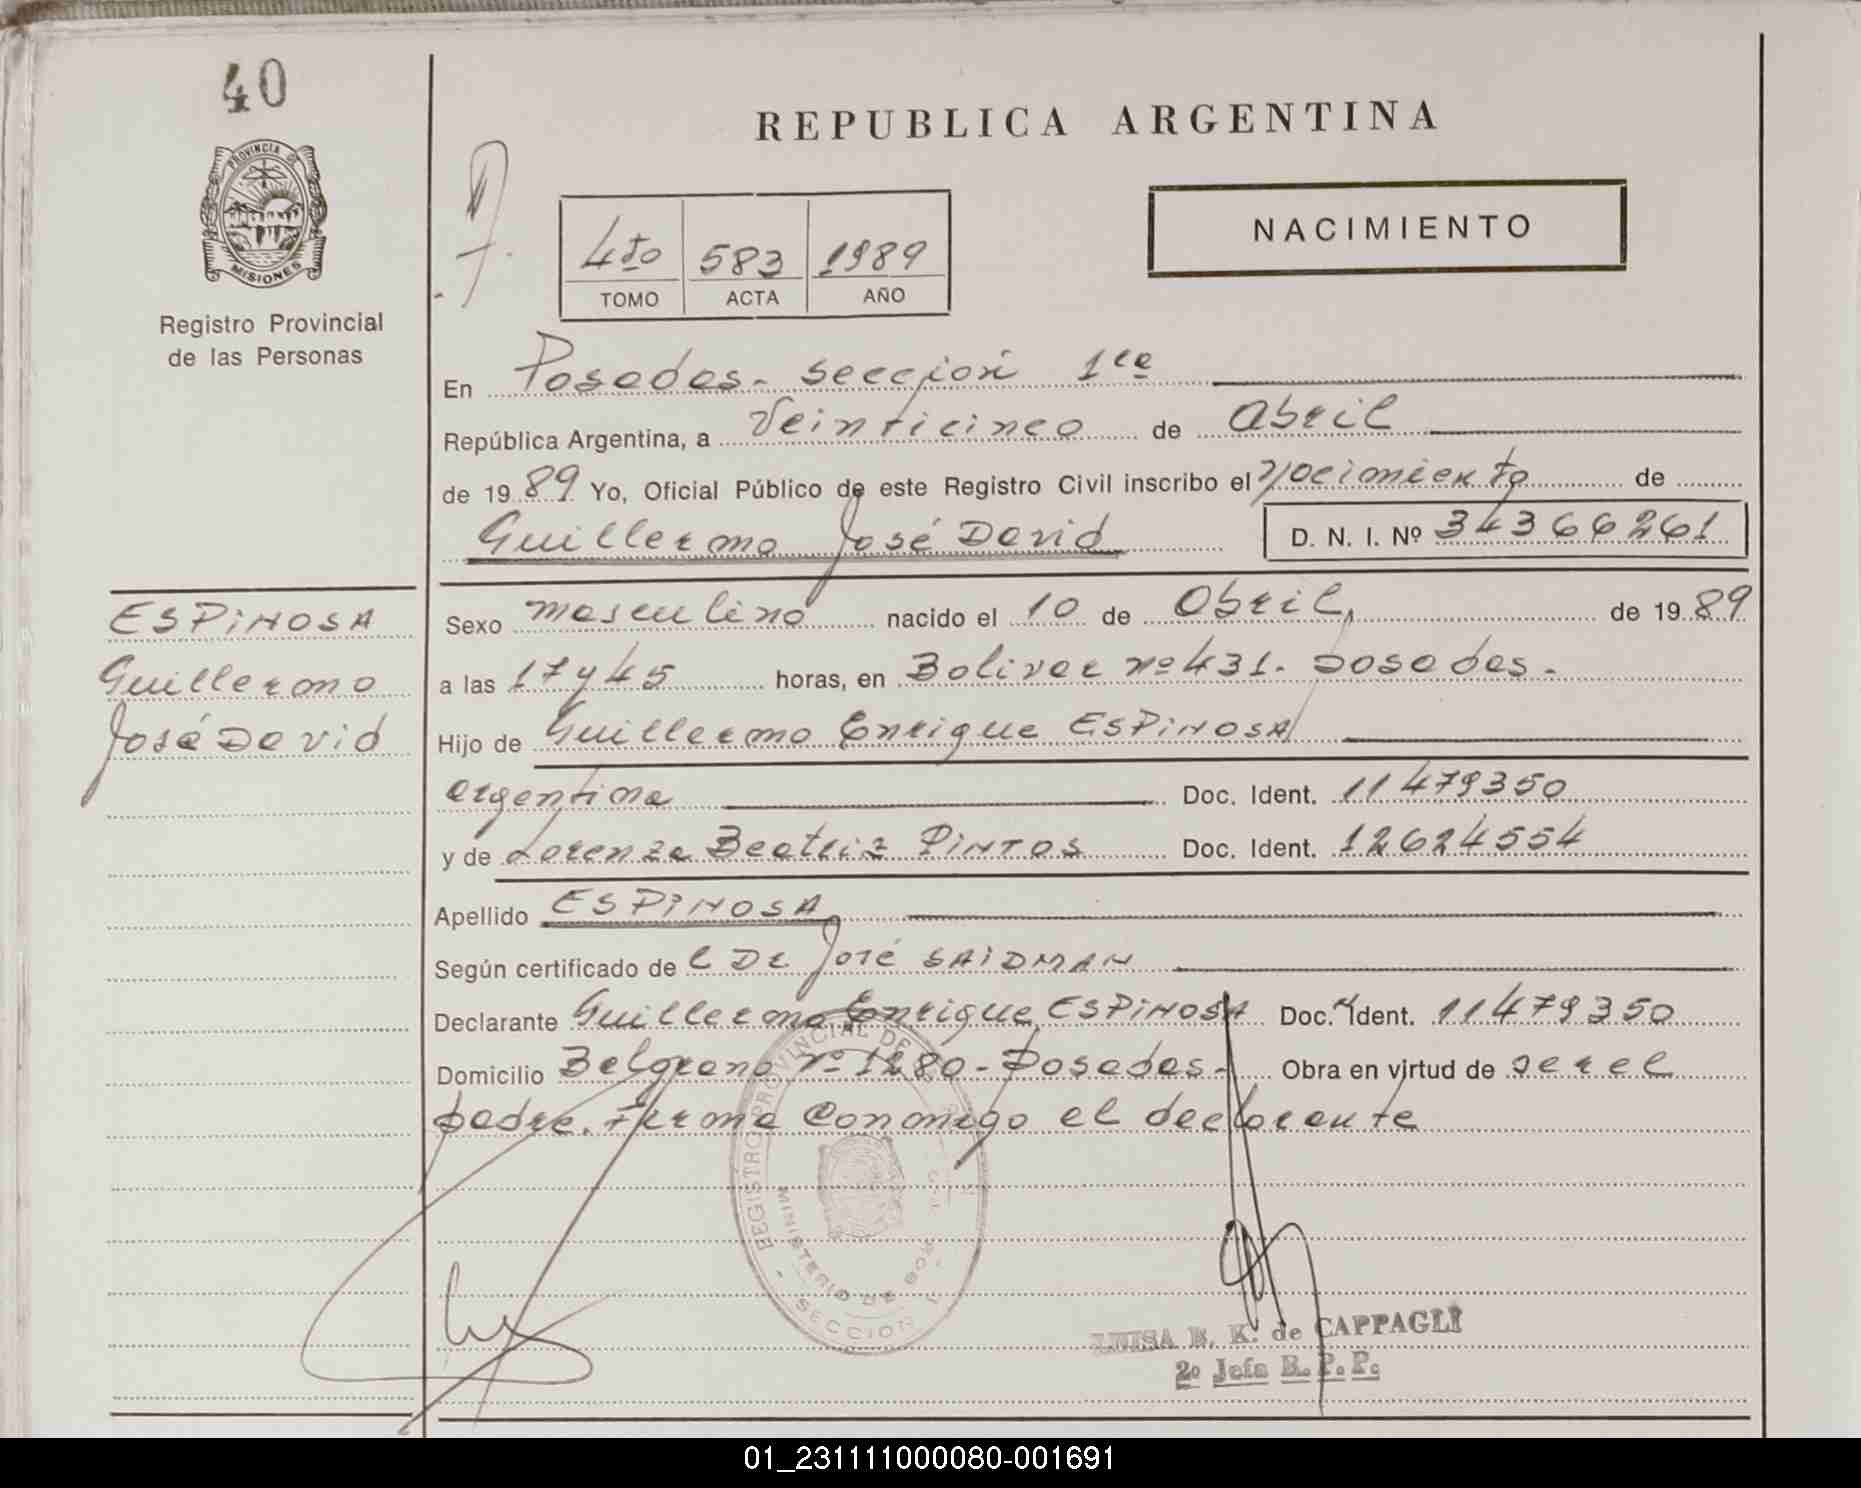 40
PROVINCIA DE
MISIONES
Registro Provincial
de las Personas
REPUBLICA ARGENTINA
4to 583 1989
TOMO ACTA AÑO
NACIMIENTO
En Posadas - sección 1ra
República Argentina, a Veinticinco de Abril
de 1989 Yo, Oficial Público de este Registro Civil inscribo el nacimiento de
Guillermo José David D. N. I. Nº 34366261
ESPINOSA
Guillermo
José David
Sexo masculino nacido el 10 de Abril, de 1989
a las 17 y 45 horas, en Bolivar nº 431 - Posadas -
Hijo de Guillermo Enrique ESPINOSA
argentina Doc. Ident. 11479350
y de Lorenza Beatriz PINTOS Doc. Ident. 12624554
Apellido ESPINOSA
Según certificado de l Dr José SAIDMAN
Declarante Guillermo Enrique ESPINOSA Doc. Ident. 11479350
Domicilio Belgrano nº 1280 - Posadas - Obra en virtud de ser el
padre. Firma conmigo el declarante
REGISTRO PROVINCIAL DE
MINISTERIO DE GOB
SECCION
LUISA B. K. de CAPPAGLI
2º Jefa R. P. P.
01_231111000080-001691